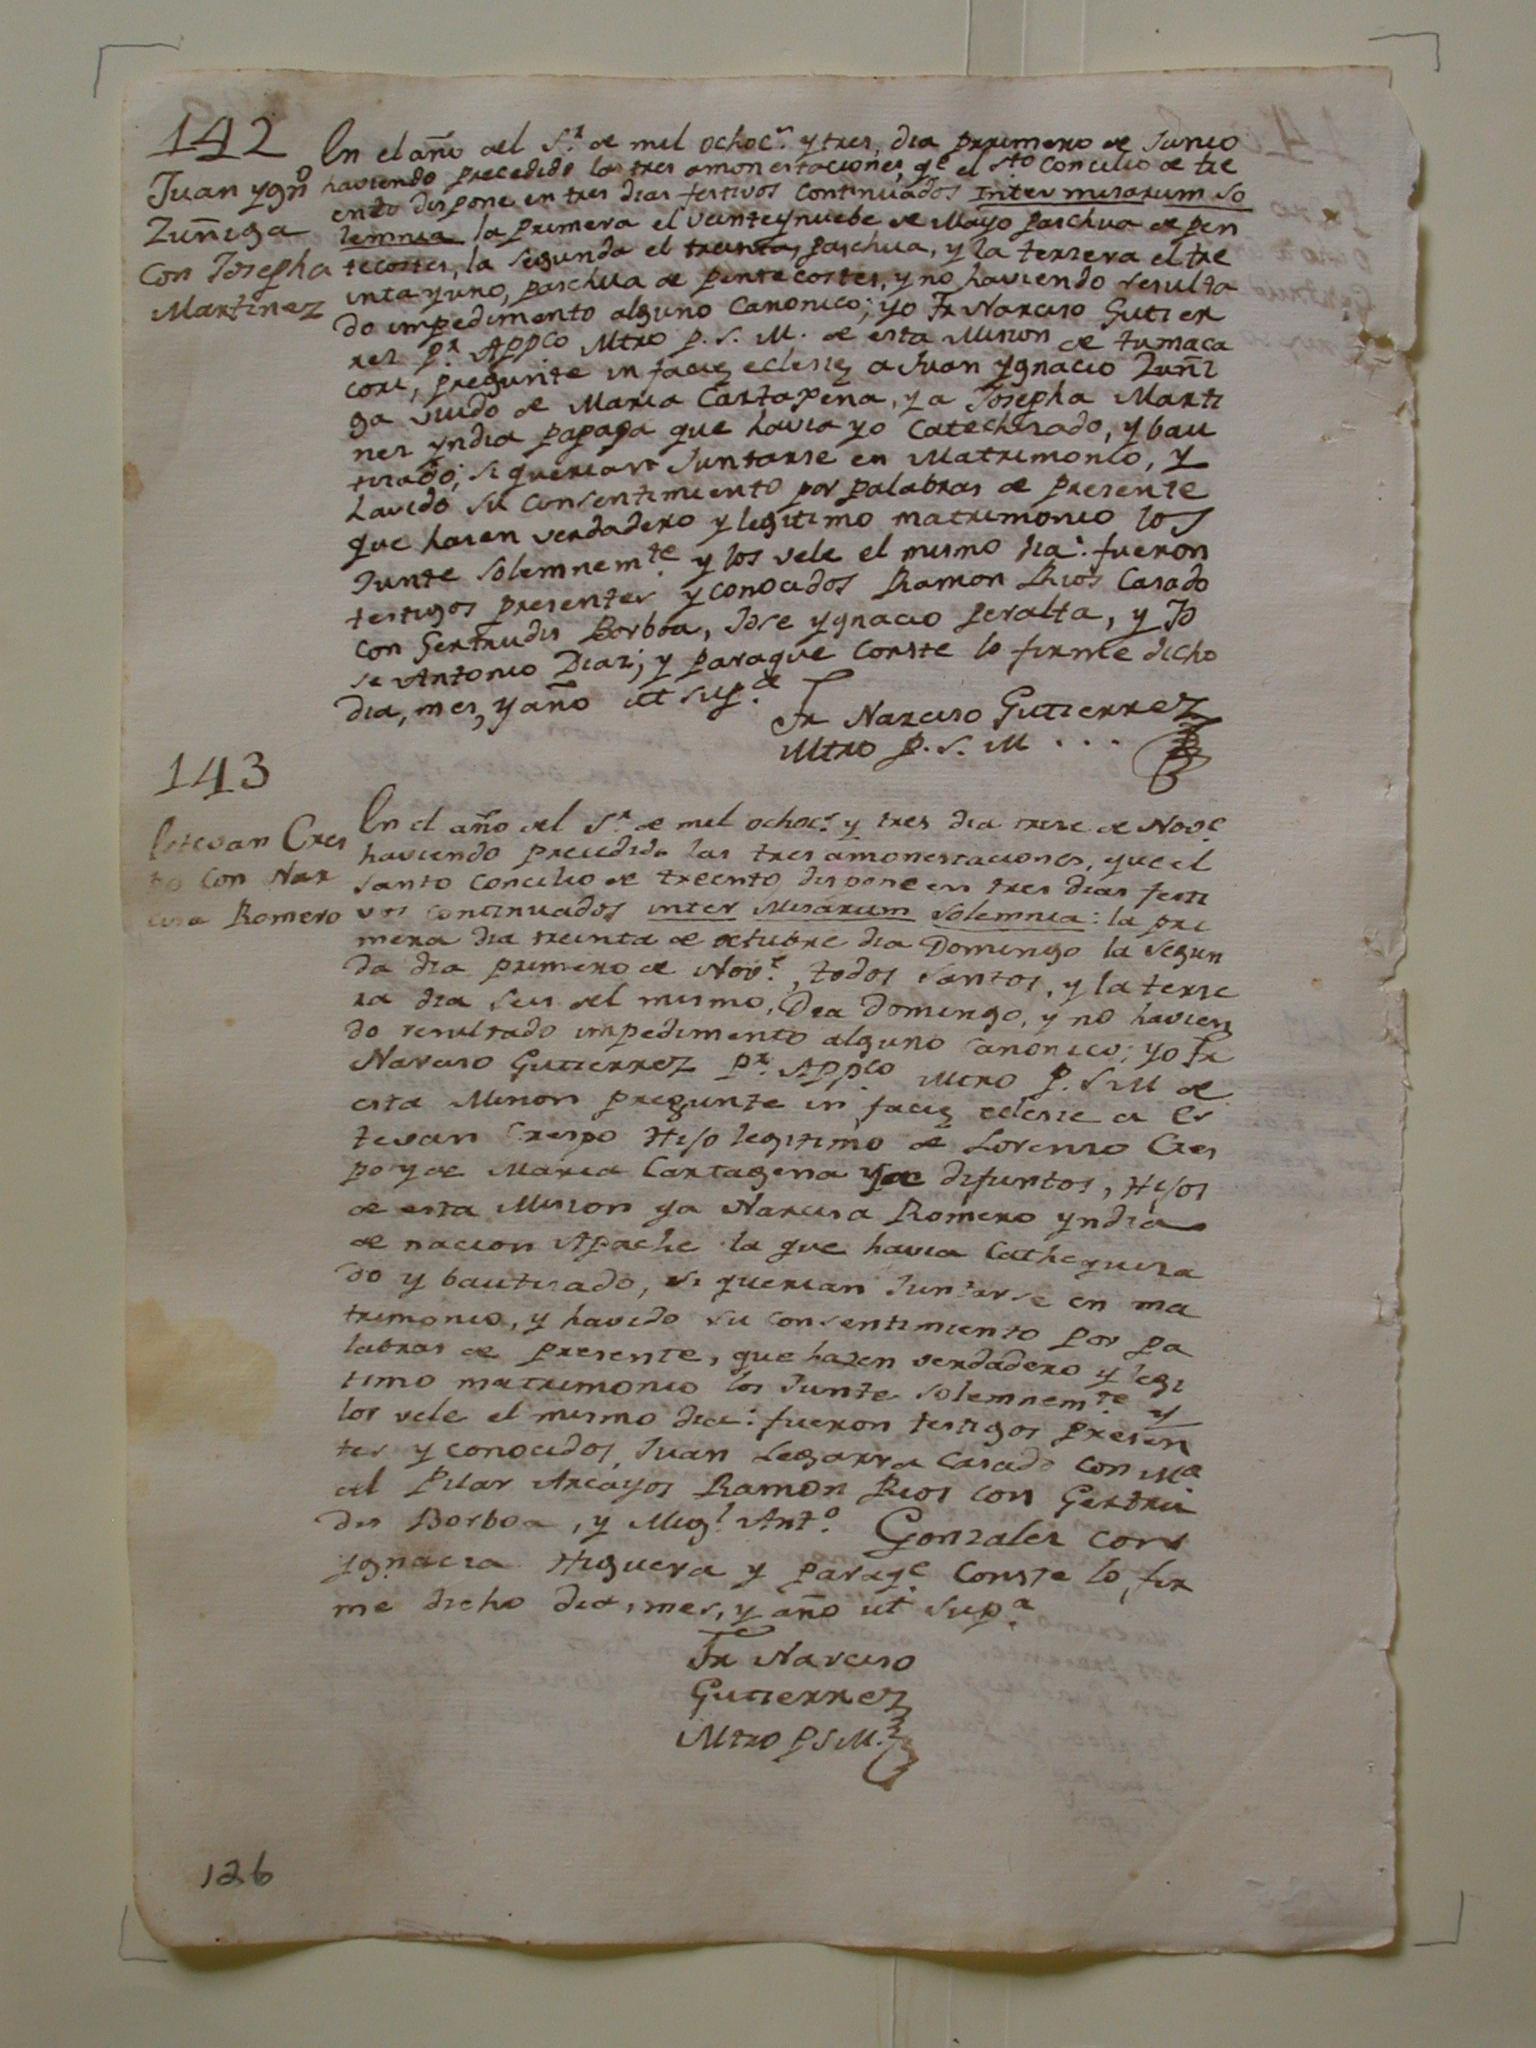 142
Juan ygn.o
Zuñiga
Con Josepha
Martinez
En el año del S.r de mil ochoc.s y tres, dia primero de Junio
haviendo precedido las tres amonestaciones, q.e el S.to Concilio de tre
ento dispone en tres dias festivos continuados Inter misarum so
lemnia la primera el veinteynuebe de Mayo paschua de pen
tecostes, la segunda el treinta, paschua, y la tersera el tre
inta y uno, paschua de pentecostes, y no haviendo resulta
do impedimento alguno Canonico; yo Fr Narciso Gutier
res P.r Appco Mtro p. S. M. de esta Mision de tumaca
cori, pregunte in facie eclesie a Juan ygnacio Zuñi
ga viudo de Maria Cartaxena, y a Josepha Marti
nes yndia papaga que havia yo Catechisado, y bau
tisado; si querian Juntarse en Matrimonio, y
havido su consentimiento por palabras de presente
que hasen verdadero y legitimo matrimonio los
Junte Solemnem.te y los vele el mismo dia: fueron
testigos presentes y conocidos Ramon Rios Casado
con Gertrudis Borboa, Jose ygnacio peralta, y Jo
se Antonio Dias; y paraque conste lo firme dicho
dia, mes, y año ut sup.a
Fr Narciso Gutierrez
Mtro p. S. M . . .
143
Estevan Cres
po con Nar
cisa Romero
En el año del S.r de mil ochoc.s y tres dia trese de Nov.e
haviendo precedido las tres amonestaciones, que el
Santo Concilio de treento dispone en tres dias festi
vos continuados inter Misarum Solemnia: la pri
mera dia treinta de octubre dia Domingo la segun
da dia primero de Nov.e, todos santos, y la terse
ra dia seis del mismo, Dia Domingo, y no havien
do resultado impedimento alguno Canonico; yo Fr
Narciso Gutierrez P.r Appco Mtro P. S M de
esta Mision pregunte in facie eclesie a Es
tevan Crespo Hijo legitimo de Lorenso Cres
po y de Maria Cartagena ya difuntos, Hijos
de esta Mision ya Narcisa Romero yndia
de nacion Apache la que havia Cathequisa
do y bautisado, si querian Juntarse en ma
trimonio, y havido su consentimiento por pa
labras de presente, que hazen verdadero y legi
timo matrimonio los Junte Solemnem.te y
los vele el mismo dia: fueron testigos presen
tes y conocidos, Juan Legarra Casado con M.a
del Pilar Arcayos Ramon Rios con Gertru
dis Borboa, y Mig.l Ant.o Gonzales con
ygnacia Higuera y paraq.e Conste lo fir
me dicho dia, mes, y año ut sup.a
Fr Narciso
Gutierrez
Mtro p S M.
126